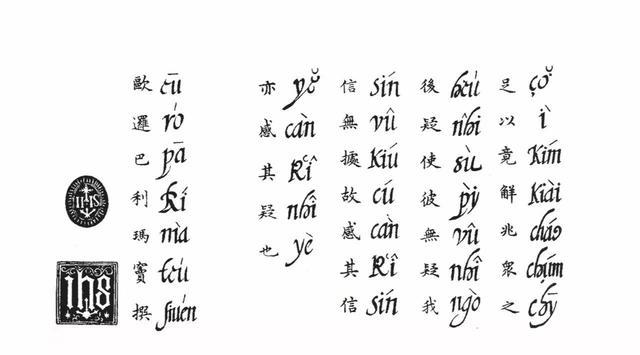 足以竟解兆眾之
çŏ ì kím kiài cháo chúm chȳ
後疑使彼無疑我
héu nhî sù pỳ vû nhî ngò
信無據故感其信
sín vû kiú cú càn kʽî sín
亦感其疑也
yĕ càn kʽî nhî yè
歐邏巴利瑪竇撰
eū ró pā lí mà téu siuén
IHS
ihs